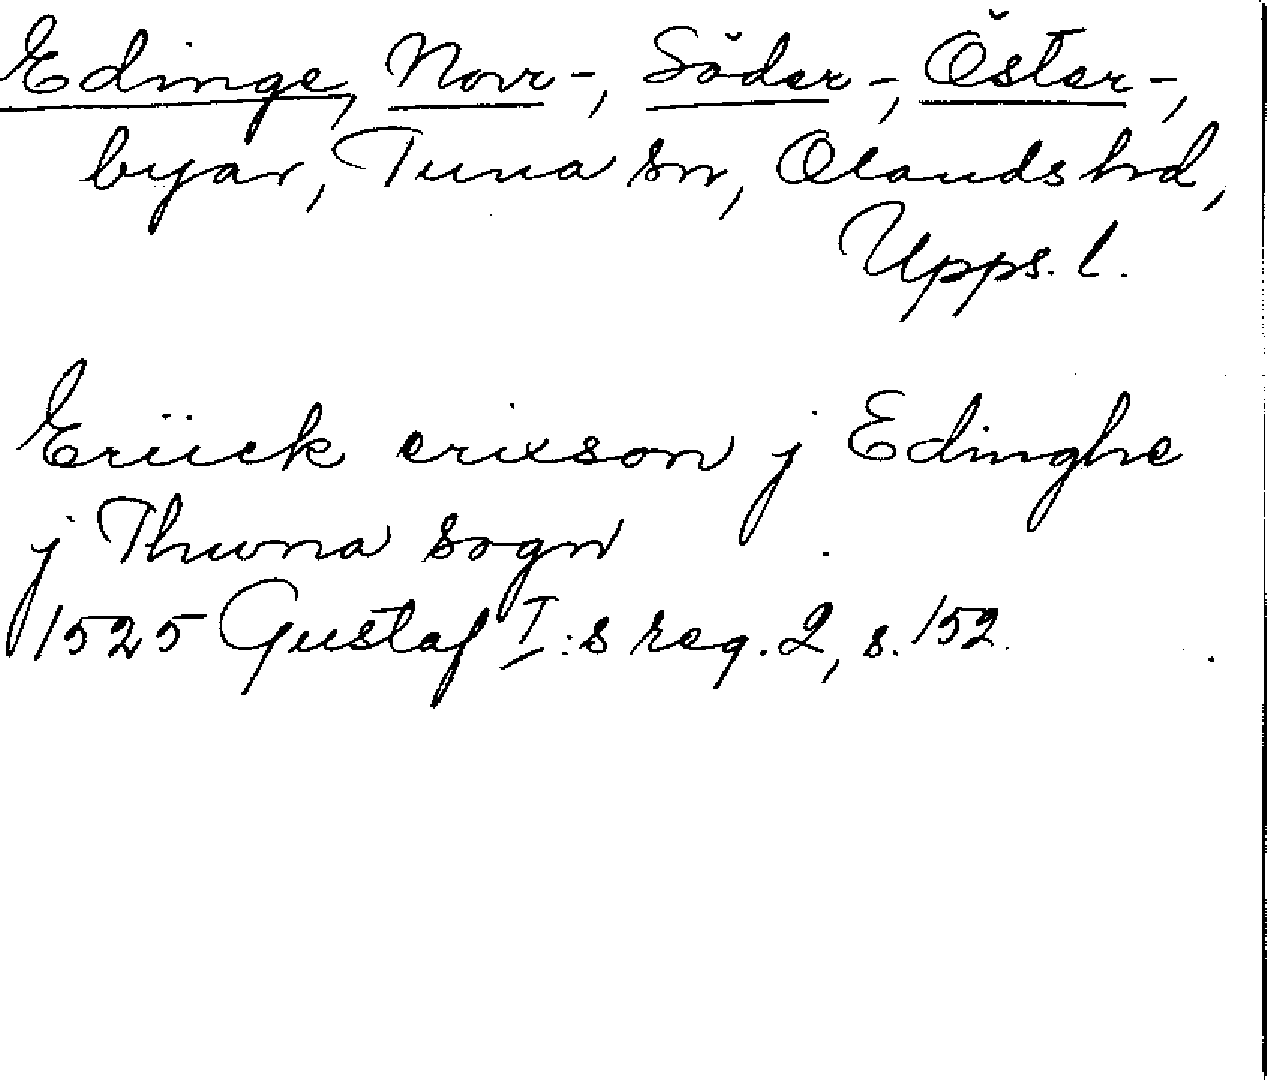 Edinge, Norr-, Söder-, Öster-,
byar, Tuna sn, Olands hd,
Upps. l.
Eriick erixson j Edinghe
j Thuna sogn
1525 Gustaf I:s reg. 2, s. 152.